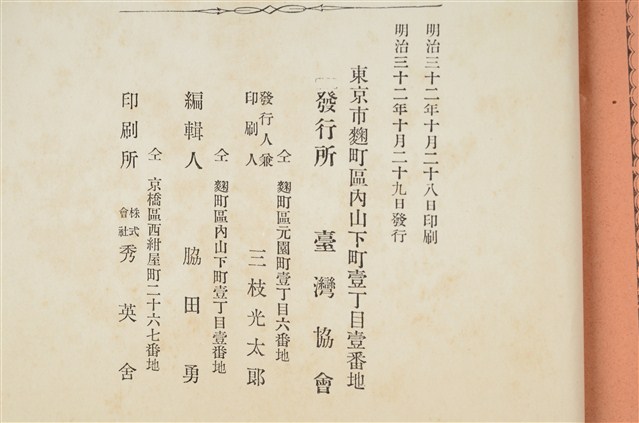 明治三十二年十月二十八日印刷
明治三十二年十月二十九日發行
東京市麴町區內山下町壹丁目壹番地
發行所 臺灣協會
仝 麴町區元園町壹丁目六番地
發行人兼印刷人 三枝光太郎
仝 麴町區內山下町壹丁目壹番地
編輯人 脇田勇
仝 京橋區西紺屋町二十六七番地
印刷所 株式會社 秀英舍